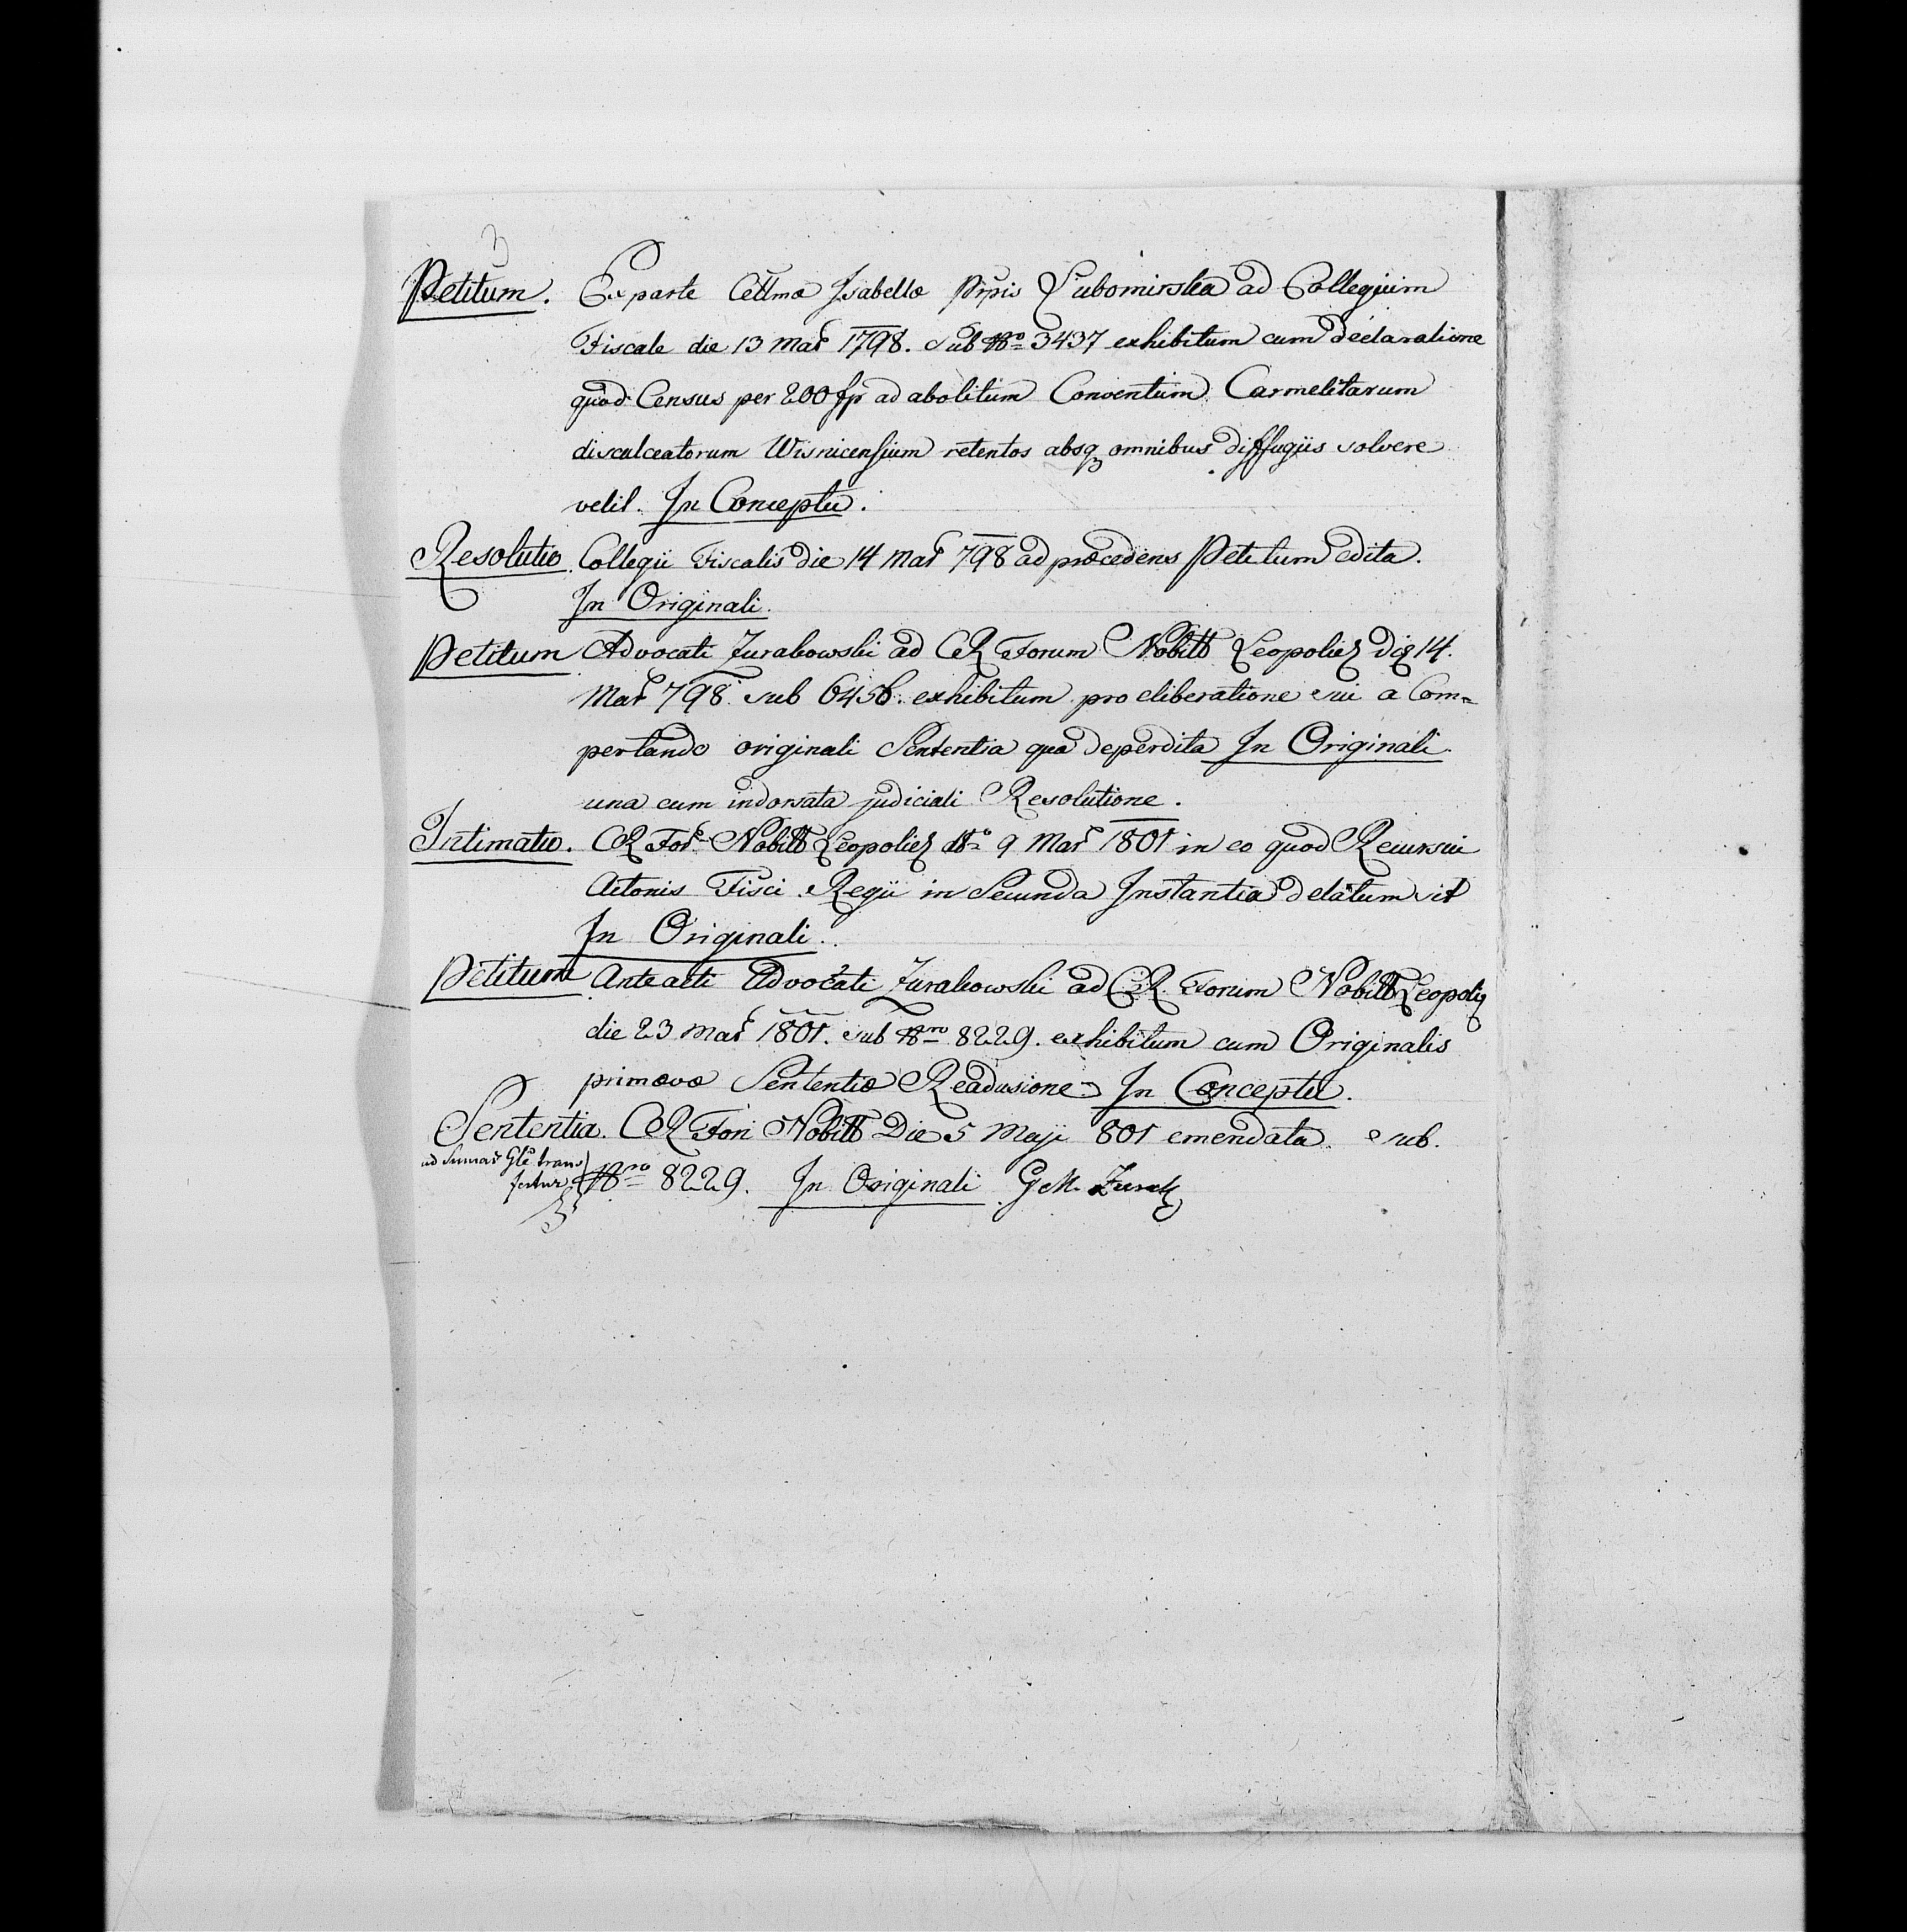 3
Petitum. Ex parte Cellmæ Isabellæ Ppis Lubomirska ad Collegium
Fiscale die 13 Mar 1798. sub Nro 3437 exhibitum cum declaratione
quod Census per 200 fp ad abolitum Conventum Carmelitarum
discalceatorum Wisnicensium retentos absq omnibus diffugiis solvere
velit. In Conceptu.
Resolutio. Collegii Fiscalis die 14 Mar 798 ad præcedens Petitum edita.
In Originali.
Petitum Advocati Zurakowski ad CR Forum Nobill Leopolien die 14.
Mar 798. sub 6456. exhibitum pro eliberatione sui a Com=
pertando originali Sententia qua deperdita In Originali.
una cum indorsata judiciali Resolutione.
Intimatio. CR Fori Nobill Leopolien dto 9 Mar 1801 in eo quod Recursui
Actoris Fisci Regii in Secunda Instantia delatum sit
In Originali.
Petitum Anteacti Advocati Zurakowski ad C.R. Forum Nobill Leopolien
die 23 Mar 1801. sub Nro 8229. exhibitum cum Originalis
primævæ Sententiæ Readusione In Conceptu.
Sententia. CR Fori Nobill Die 5 Maji 801 emendata sub.
ad Sumar Gle trans
fertur Nro 8229. In Originali GM. Zurak